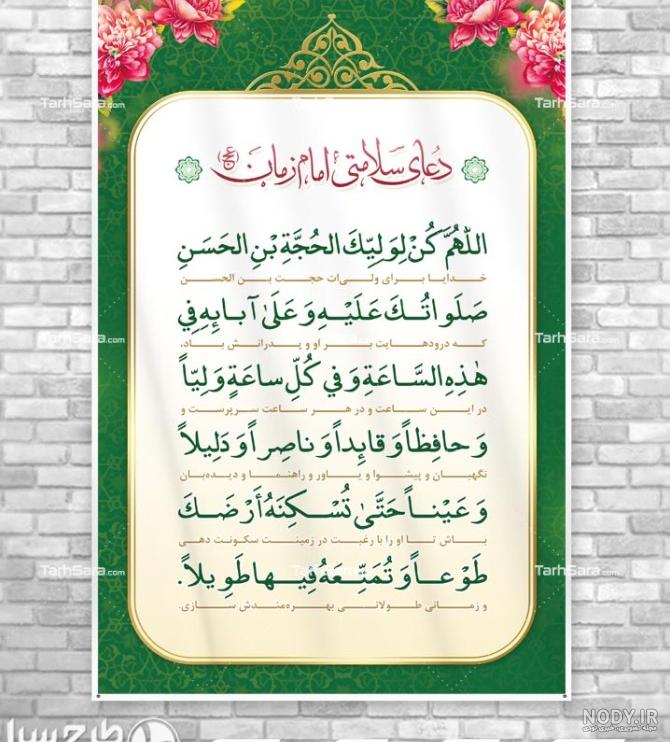 TarhSara.com TarhSara.com TarhSara.com
دعای سلامتی امام زمان (عج)
اللّٰهُمَّ كُنْ لِوَلِيِّكَ الحُجَّةِ بْنِ الحَسَنِ
خدایا برای ولی‌ات حجت بن الحسن
صَلَواتُكَ عَلَيْهِ وَ عَلَىٰ آبائِهِ في
TarhSara.com TarhSara.com
که درودهایت بر او و پدرانش باد،
هٰذِهِ السَّاعَةِ وَ في كُلِّ ساعَةٍ وَلِيّاً
در این ساعت و در هر ساعت سرپرست و
وَ حافِظاً وَ قائِداً وَ ناصِراً وَ دَلِيلاً
TarhSara.com TarhSara.com
نگهبان و پیشوا و یاور و راهنما و دیده‌بان
وَ عَيْناً حَتَّىٰ تُسْكِنَهُ أَرْضَكَ
باش تا او را با رغبت در زمینت سکونت دهی
طَوْعاً وَ تُمَتِّعَهُ فِيها طَوِيلاً.
TarhSara.com TarhSara.com
و زمانی طولانی بهره‌مندش سازی.
طرح سرا
NODY.IR
مجله تصویری، خبری نودی